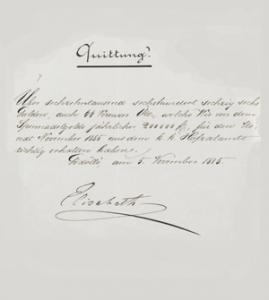 Quittung.
Über sechzehntausend sechshundert sechzig sechs
Gulden, auch 66 Kreuzer Öw., welche Wir von dem
Spennadelgelde jährlicher 200000 fl. für den Mo-
nat November 1885 aus dem k. k. Hofzalamte
richtig erhalten haben.
Gödöllö am 5 November 1885.
Elisabeth